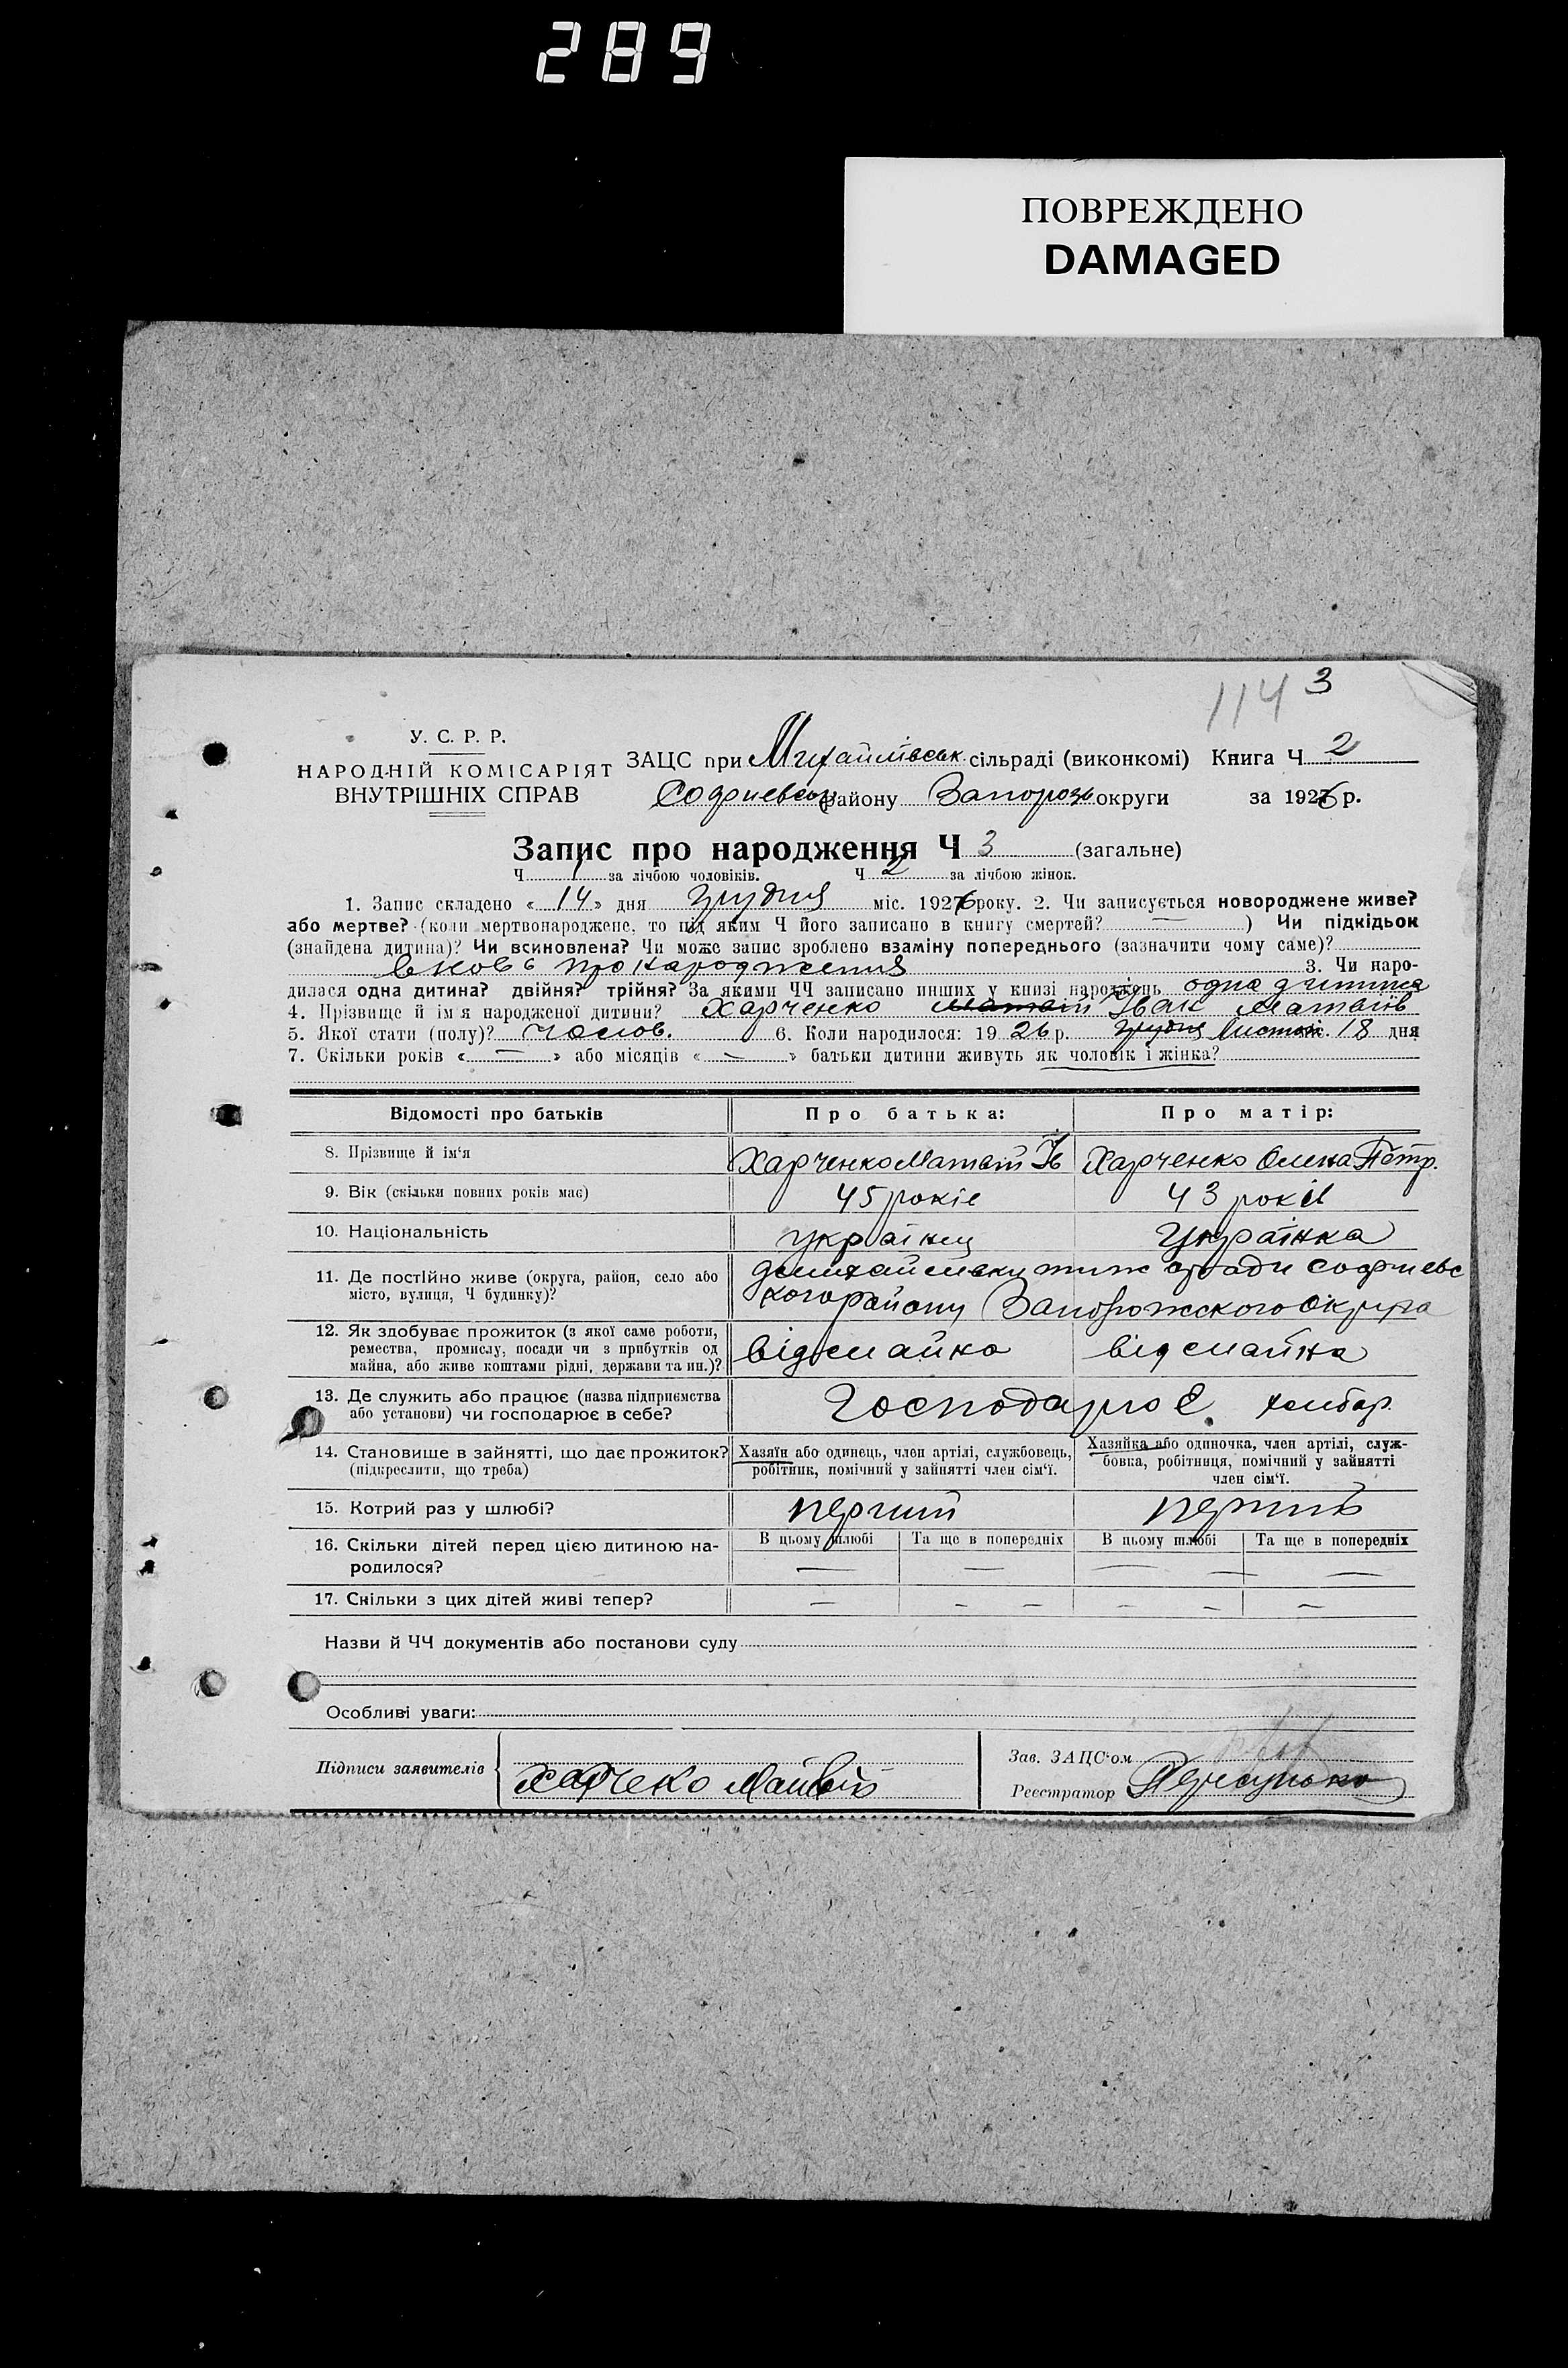 289
ПОВРЕЖДЕНО
DAMAGED
114 3
У. С. Р. Р.
НАРОДНІЙ КОМІСАРІЯТ
ВНУТРІШНІХ СПРАВ
ЗАЦС при Михайлівськ сільраді (виконкомі) Книга Ч 2
Софиевськ району Запорозь округи за 1926 р.
Запис про народження Ч 3 (загальне)
Ч 1 за лічбою чоловіків. Ч 2 за лічбою жінок.
1. Запис складено « 14 » дня грудня міс. 1926 року. 2. Чи записується новороджене живе?
або мертве? (коли мертвонароджене, то під яким Ч його записано в книгу смертей? — ) Чи підкідьок
(знайдена дитина)? Чи всиновлена? Чи може запис зроблено взаміну попереднього (зазначити чому саме)?
вновь про народження 3. Чи наро-
дилася одна дитина? двійня? трійня? За якими ЧЧ записано инших у книзі народжень одна дитина
4. Прізвище й ім'я народженої дитини? Харченко Матвій Іван Матвіїв
5. Якої стати (полу)? чолов. 6. Коли народилося: 19 26 р. грудня Листоп. 18 дня
7. Скільки років « — » або місяців « — » батьки дитини живуть як чоловік і жінка?
Відомості про батьків Про батька: Про матір:
8. Прізвище й ім‘я Харченко Матвій Ів Харченко Олена Петр.
9. Вік (скільки повних років має) 45 років 43 років
10. Національність українец Українка
11. Де постійно живе (округа, район, село або
місто, вулиця, Ч будинку)?
Софиевс
кого району Запорожского Округа
12. Як здобуває прожиток (з якої саме роботи,
ремества, промислу, посади чи з прибутків од
майна, або живе коштами рідні, держави та ин.)?
13. Де служить або працює (назва підприємства
або установи) чи господарює в себе?
Господарює хлібор.
14. Становище в зайнятті, що дає прожиток?
(підкреслити, що треба)
Хазяїн або одинець, член артілі, службовець,
робітник, помічний у зайнятті член сім‘ї.
Хазяйка або одиночка, член артілі, служ-
бовка, робітниця, помічний у зайнятті
член сім‘ї.
15. Котрий раз у шлюбі? перший
16. Скільки дітей перед цією дитиною на-
родилося?
В цьому шлюбі Та ще в попередніх В цьому шлюбі Та ще в попередніх
— — — — —
17. Скільки з цих дітей живі тепер? — — — — — —
Назви й ЧЧ документів або постанови суду
Особливі уваги:
Підписи заявителів Харчеко
Зав. ЗАЦС‘ом
Реєстратор